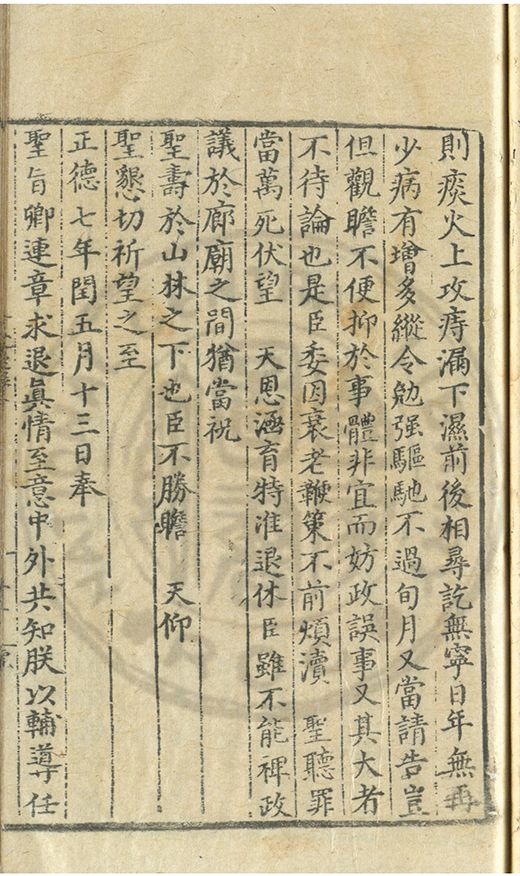 則痰火上攻痔漏下濕前後相尋訖無寧日年無再
少病有增多縱令勉强驅馳不過旬月又當請告豈
但觀瞻不便抑於事體非宜而妨政誤事又其大者
不待論也是臣委因衰老鞭策不前煩瀆　聖聽罪
當萬死伏望　天恩涵育特准退休臣雖不能裨政
議於廊廟之間猶當祝
聖壽於山林之下也臣不勝瞻　天仰
聖懇切祈望之至
正德七年閏五月十三日奉
聖旨卿連章求退眞情至意中外共知朕以輔導任